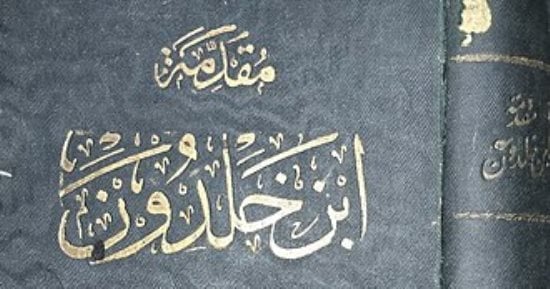 مُقَدِّمَة
ابْن خَلْدُوْن
مقدمة
ابن خلدون